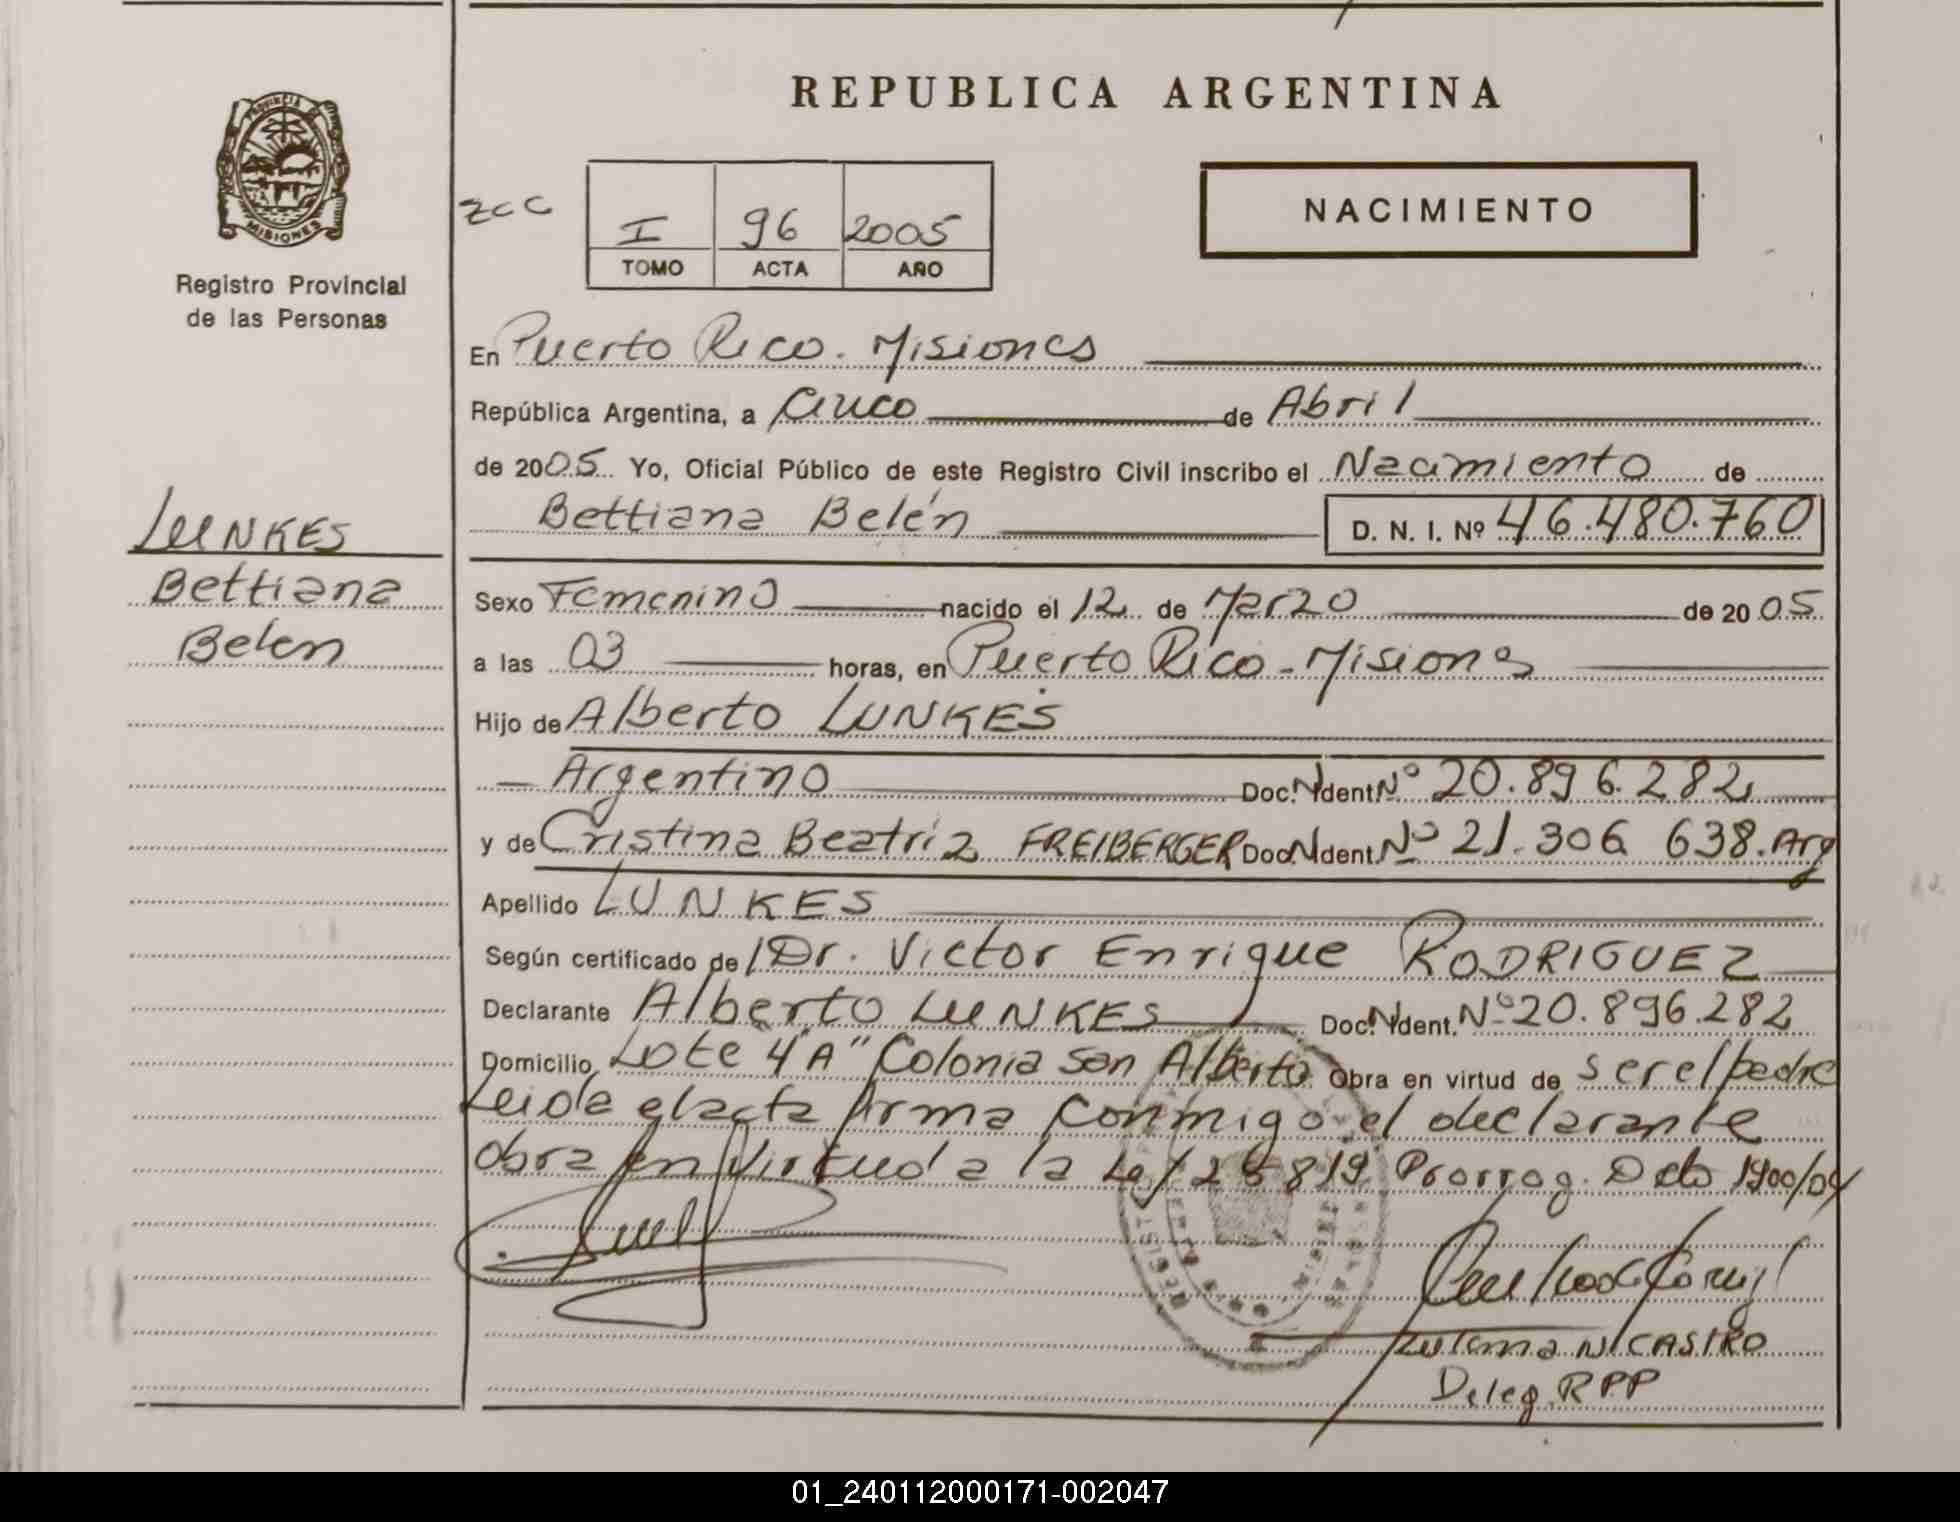 REPUBLICA ARGENTINA
PROVINCIA DE
MISIONES
Registro Provincial
de las Personas
zcc
I 96 2005
TOMO ACTA AÑO
NACIMIENTO
En Puerto Rico. Misiones
República Argentina, a Cinco de Abril
de 2005. Yo, Oficial Público de este Registro Civil inscribo el Nacimiento de
Bettiana Belén D. N. I. Nº 46.480.760
LUNKES
Bettiana
Belen
Sexo Femenino nacido el 12 de Marzo de 2005
a las 03 horas, en Puerto Rico - Misiones
Hijo de Alberto LUNKES
- Argentino Doc. Ident. Nº 20.896.282
y de Cristina Beatriz FREIBERGER Doc. Ident. Nº 21.306 638. Arg
Apellido LUNKES
Según certificado de Dr. Victor Enrique RODRIGUEZ
Declarante Alberto LUNKES Doc. Ident. Nº 20.896.282
Domicilio Lote 4 "A" Colonia San Alberto Obra en virtud de ser el padre
Leida el acta firma conmigo el declarante
Obra en Virtud a la Ley 25819 Prorrog. Dcto 1900/04
Zulema N CASTRO
Deleg. RPP
01_240112000171-002047